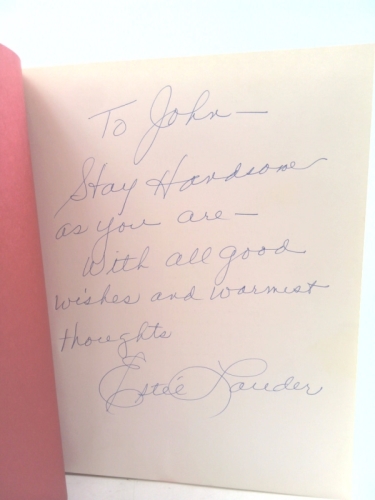 To John —
Stay Handsome
as you are —
With all good
wishes and warmest
thoughts
Estée Lauder